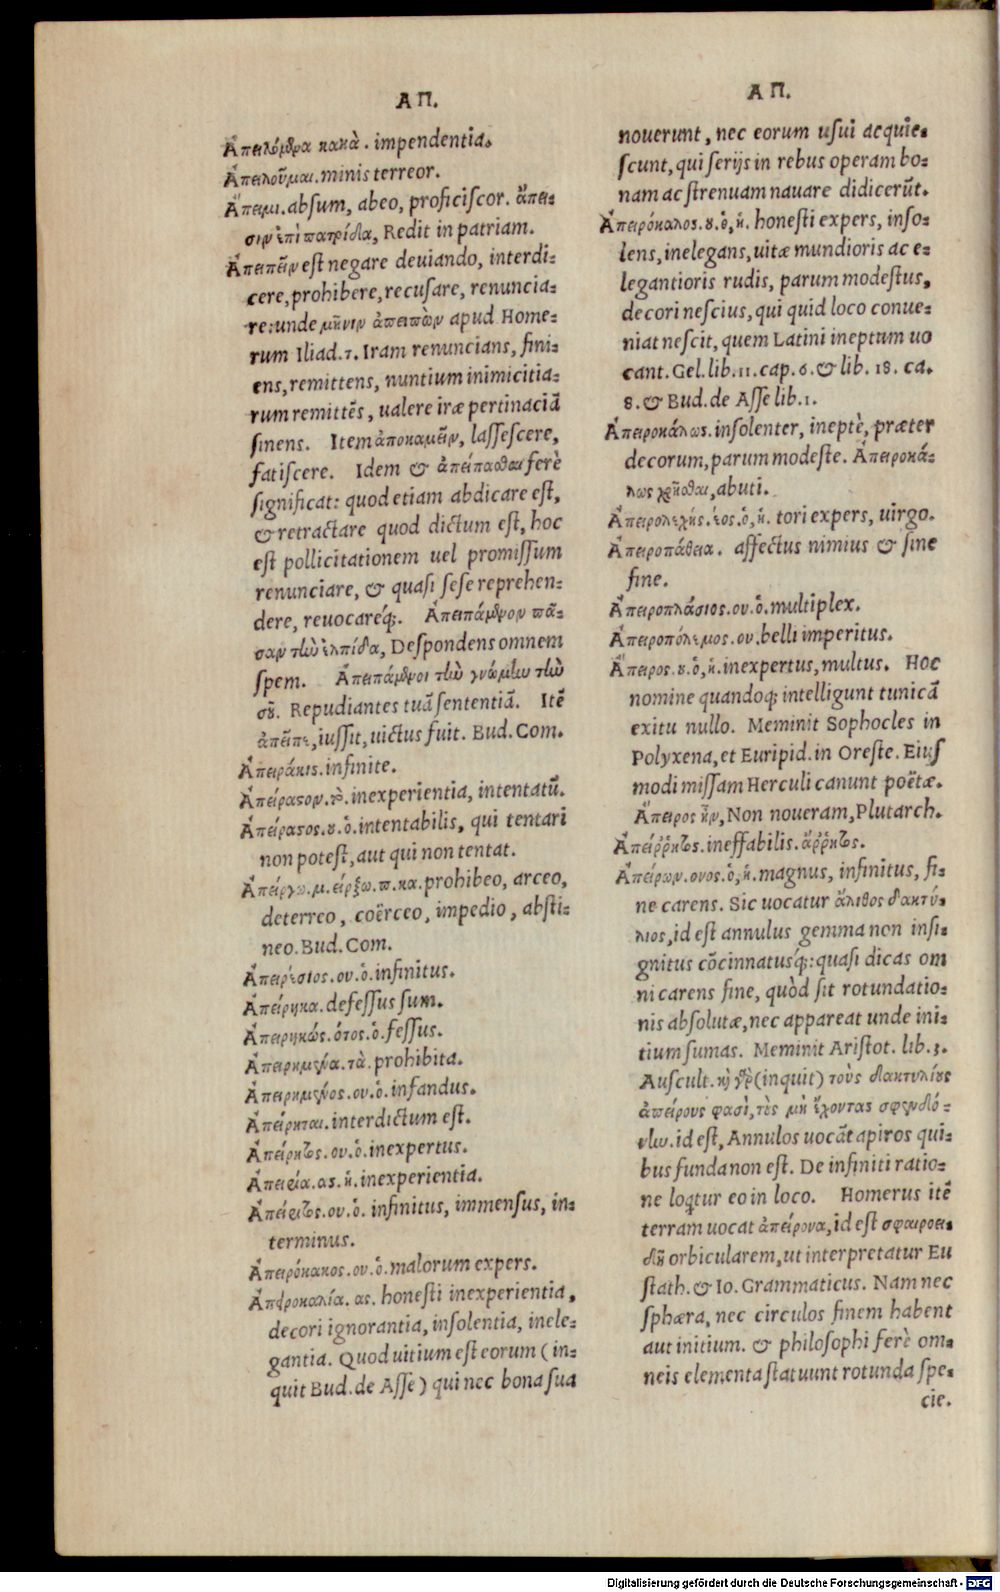 ΑΠ.
Ἀπειλόμδρα κακὰ. impendentia.
Ἀπειλοῦμαι. minis terreor.
Ἄπειμι. absum, abeo, proficiscor. ἄπει-
σιν ἐπὶ πατρίδα, Redit in patriam.
Ἀπειπεῖν est negare deuiando, interdi-
cere, prohibere, recusare, renuncia-
re: unde μῆνιν ἀπειπὼν apud Home-
rum Iliad. τ. Iram renuncians, fini-
ens, remittens, nuntium inimicitia-
rum remittẽs, ualere iræ pertinaciã
sinens. Item ἀποκαμεῖν, lassescere,
fatiscere. Idem & ἀπείπασθαι ferè
significat: quod etiam abdicare est,
& retractare quod dictum est, hoc
est pollicitationem uel promissum
renunciare, & quasi sese reprehen-
dere, reuocareq́;. Ἀπειπάμδνον πᾶ-
σαν τὴν ἐλπίδα, Despondens omnem
spem. Ἀπειπάμδνοι τὴν γνώμην τὴν
σȣ͂. Repudiantes tuã sententiã. Itẽ
ἀπεῖπε, iussit, uictus fuit. Bud. Com.
Ἀπειράκις. infinite.
Ἀπείραϛον. τὸ. inexperientia, intentatũ.
Ἀπείραϛος. ȣ. ὁ. intentabilis, qui tentari
non potest, aut qui non tentat.
Ἀπείργω. μ. είρξω. π. κα. prohibeo, arceo,
deterreo, coërceo, impedio, absti-
neo. Bud. Com.
Ἀπειρέσιος. ου. ὁ. infinitus.
Ἀπείρηκα. defessus sum.
Ἀπειρηκώς. ότος. ὁ. fessus.
Ἀπειρημένα. τὰ. prohibita.
Ἀπειρημένος. ου. ὁ. infandus.
Ἀπείρηται. interdictum est.
Ἀπείρητος. ου. ὁ. inexpertus.
Ἀπειρία. ας. ἡ. inexperientia.
Ἀπείριτος. ου. ὁ. infinitus, immensus, in-
terminus.
Ἀπειρόκακος. ου. ὁ. malorum expers.
Ἀπειροκαλία. ας. honesti inexperientia,
decori ignorantia, insolentia, inele-
gantia. Quod uitium est eorum (in-
quit Bud. de Asse) qui nec bona sua
ΑΠ.
nouerunt, nec eorum usui acquie-
scunt, qui serijs in rebus operam bo-
nam ac strenuam nauare didicerũt.
Ἀπειρόκαλος. ȣ. ὁ, ἡ. honesti expers, inso-
lens, inelegans, uitæ mundioris ac e-
legantioris rudis, parum modestus,
decori nescius, qui quid loco conue-
niat nescit, quem Latini ineptum uo
cant. Gel. lib. 11. cap. 6. & lib. 18. ca.
8. & Bud. de Asse lib. 1.
Ἀπειροκάλως. insolenter, ineptè, præter
decorum, parum modeste. Ἀπειροκά-
λως χρῆσθαι, abuti.
Ἀπειρολεχής. έος. ὁ, ἡ. tori expers, uirgo.
Ἀπειροπάθεια. affectus nimius & sine
fine.
Ἀπειροπλάσιος. ου. ὁ. multiplex.
Ἀπειροπόλεμος. ου. belli imperitus.
Ἄπειρος. ȣ. ὁ, ἡ. inexpertus, multus. Hoc
nomine quandoq; intelligunt tunicã
exitu nullo. Meminit Sophocles in
Polyxena, et Euripid. in Oreste. Eius
modi missam Herculi canunt poëtæ.
Ἄπειρος ἦν, Non noueram, Plutarch.
Ἀπείῤῥητος. ineffabilis. ἄῤῥητος.
Ἀπείρων. ονος. ὁ, ἡ. magnus, infinitus, fi-
ne carens. Sic uocatur ἄλιθος δακτύ-
λιος, id est annulus gemma non insi-
gnitus cõcinnatusq́;: quasi dicas om
ni carens fine, quòd sit rotundatio-
nis absolutæ, nec appareat unde ini-
tium sumas. Meminit Aristot. lib. 3.
Auscult. κỳ γὰρ (inquit) τοὺς δακτυλίȣς
ἀπείρους φασὶ, τὲς μὴ ἔχοντας σφενδό-
νην. id est, Annulos uocãt apiros qui-
bus funda non est. De infiniti ratio-
ne loqtur eo in loco. Homerus itẽ
terram uocat ἀπείρονα, id est σφαιροει-
δῆ orbicularem, ut interpretatur Eu
stath. & Io. Grammaticus. Nam nec
sphæra, nec circulos finem habent
aut initium. & philosophi ferè om-
neis elementa statuunt rotunda spe-
cie.
Digitalisierung gefördert durch die Deutsche Forschungsgemeinschaft - DFG